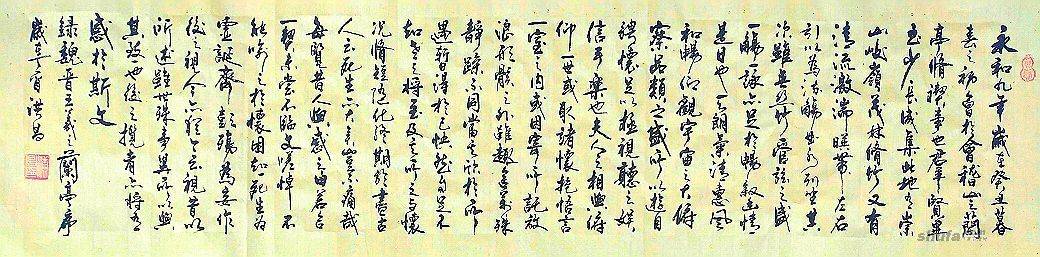 永和九年歲在癸丑暮
春之初會於會稽山之蘭
亭脩禊事也群賢畢
至少長咸集此地有崇
山峻嶺茂林脩竹又有
清流激湍暎帶左右
引以為流觴曲水列坐其
次雖無絲竹管弦之盛
一觴一詠亦足於暢敘幽情
是日也天朗氣清惠風
和暢仰觀宇宙之大俯
察品類之盛所以遊目
騁懷足以極視聽之娛
信可樂也夫人之相與俯
仰一世或取諸懷抱悟言
一室之內或因寄所託放
浪形骸之外雖趣舍萬殊
靜躁不同當其欣於所
遇暫得於己快然自足不
知老之將至及其所之興懷
況脩短隨化終期於盡古
人云死生亦大矣豈不痛哉
每覽昔人興感之由若合
一契未嘗不臨文嗟悼不
能喻之於懷固知死生為
虛誕齊彭殤為妄作
後之視今亦猶今之視昔以
所述雖世殊事異所以興
其致也後之攬者亦將有
感於斯文
錄魏晉王羲之蘭亭序
歲在洪昌